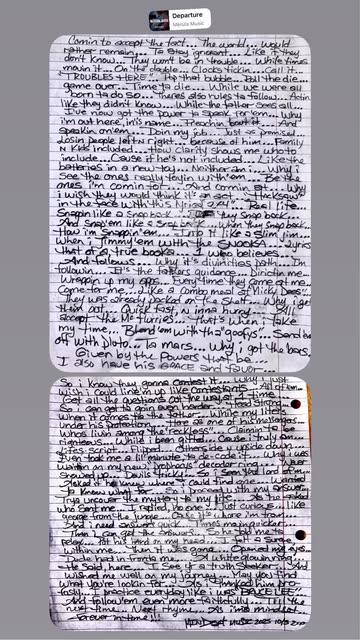 Departure
Merula Music
Comin to accept the fact... The world... Would
rather remain... To stay ignorant... Like if they
don't know... They won't be in trouble... While times
movin it... On the double... Clocks tickin... Call it...
"TROUBLES HERE"... that bubble... Roll the die...
game over... Time to die... While we were all
born to do so... There's also rules to follow... Actin
like they didn't know... While the father sees all...
I've now got the power to speak for em... Why
i'm out here in his name...
speakin on em... Doin my job... Just as promised
Losin people left n right... because of him... Family
n kids included... How Clarity shows me who to
include... Cause if he's not included... Like the
batteries in a new toy... Neither am i... Why i
see the ones really foulin with em... Be the
ones i'm comin at... And comin at... Why
i wish they would think it's an act...
in the face with this
Snappin like a snap back... they snap back...
And snap em like a snap back... when they snap back...
How i'm snappin em... into a slim jim...
When i Jimmy em with the SNOOKA... Lyrics
that of a true books... Who believes...
And follows... Why it's divinities path... I'm
followin... It's the fathers guidance... Directin me
Wrappin up my opps... Everytime they come at me
Come for me... Like a combo meal at Mickey Dees...
They was already packed on the shelf... Why i get
them out... Quick fast, n inna hurry... All
accept the Mc flurries... that's when i take
my time... Blend em with the "goofys"... Send em
off with pluto... To mars... Why i got the bars...
Given by the Powers that be...
I also have his GRACE and favor...
So i know they gonna contest it... Why i just
wish i could line em up like contestants...
Get all the questions out the way at 1 time...
So i can get to goin even harder... Head strong
When it comes to the father... While my life's
under his protection... Here as one of his messengers...
Who's livin among the "reckless"... Claimin to be
righteous... While i been gifted... Cause truly an...
Lifes script... Flipped... Otherside n upside down...
Even took me all minute to decode it... Why i was
waitin on my new, prophetic decoder ring...
showed up... Devils tricks... So i seen the lord
Asked if he knew where i could find one... Wanted
to know what for... So i proceed with my answer
Tryna uncover the mystery to my life... As he asked
who sent me... I replied, no one... Just curious... Like
george from the jungle... Only it's where i'm from...
And i need answers quick... Times mains quicker...
Then i can get the answers... So he told me to
relax... Put his hand on my head... Felt a surge
within me... Then it was gone... Opened my eyes...
Jade hand in front of me... A white glowin ring
He said, here... I see yr a truth seeker... And
wished me well on my journey... May you find
what you're lookin for... As i thanked him pro-
fusly... I practice everyday like i was "BRUCE LEE"
And follow em even more faithfully... Until the
next time... Next rhyme... As i'm is mindset
forever in time!!